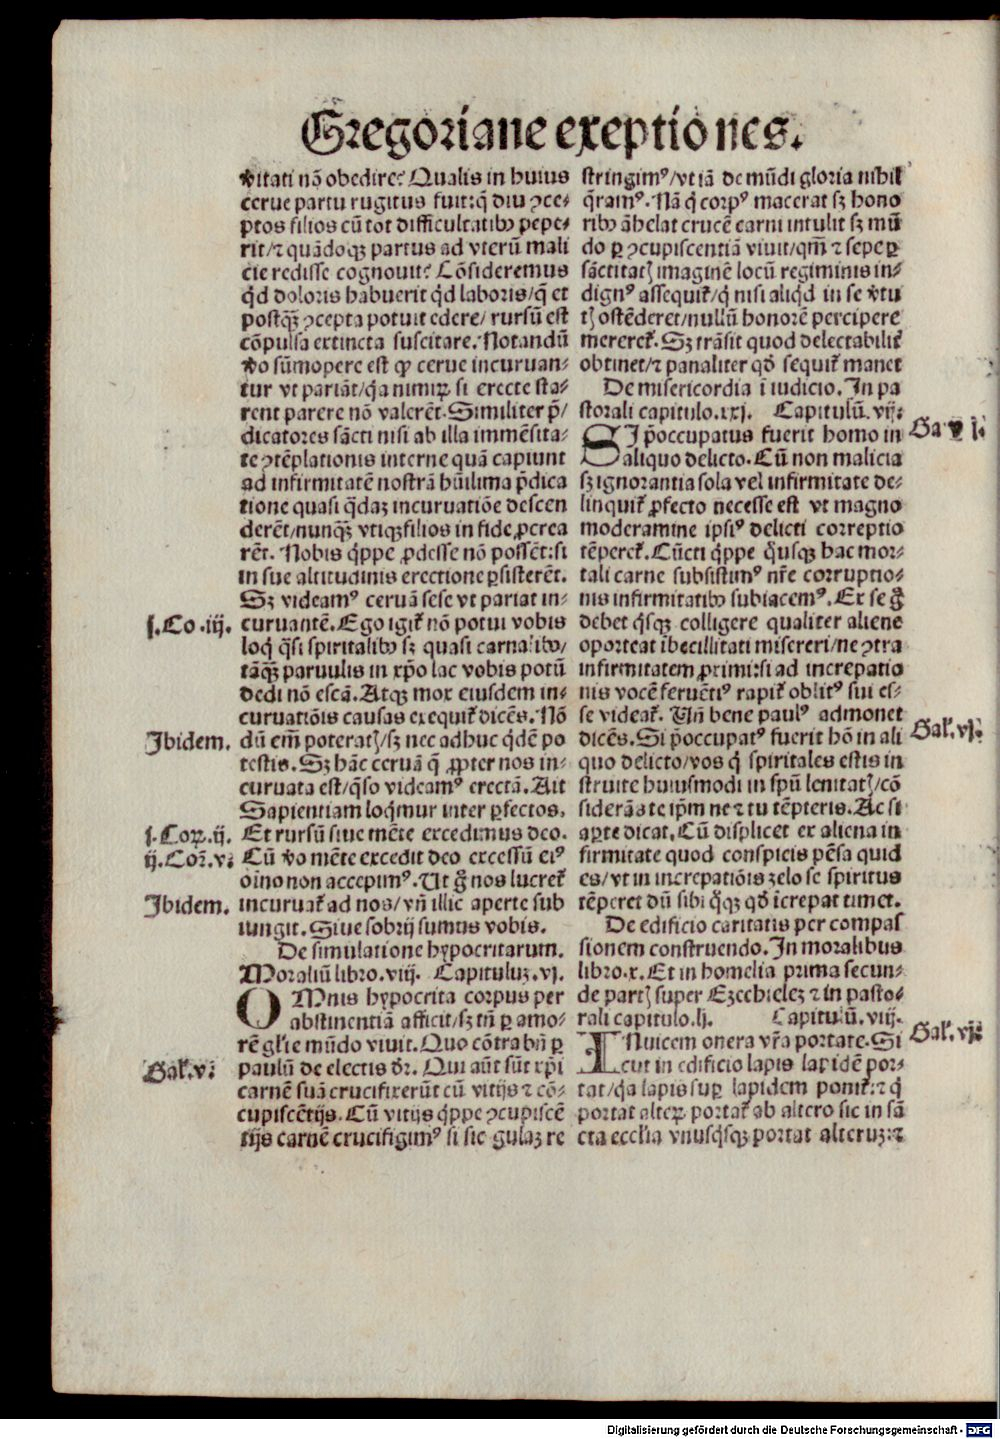 Gregoriane exeptiones.
v̾itati nō obedire? Qualis in huius
cerue partu rugitus fuit: q̄ diu ꝯce⸗
ptos filios cū tot difficultatibꝰ pepe⸗
rit/⁊ quādoqꝫ partus ad vterū mali
cie redisse cognouit? Cōsideremus
qd̄ doloris habuerit qd̄ laboris/q̄ et
postqꝫ̄ ꝯcepta potuit edere/ rursū est
cōpulsa extincta suscitare. Notandū
v̾o sūmopere est ꝙ cerue incuruan⸗
tur vt pariāt/qͥa nimiꝝ si erecte sta⸗
rent parere nō valerēt. Similiter p̄/
dicatores sācti nisi ab illa immēsita⸗
te ꝯtēplationis interne quā capiunt
ad infirmitatē nostrā hūilima p̄dica
tione quasi qͥdaꝫ incuruatiōe descen
derēt/nunqꝫ̄ vtiqꝫ filios in fide ꝓcrea
rēt. Nobis qͥppe ꝓdesse nō possēt: si
in sue altitudinis erectione ꝑsisterēt.
Sꝫ videamꝰ ceruā sese vt pariat in⸗
j. Co. iij. curuantē. Ego igit᷑ nō potui vobis
loqͥ qͣsi spiritalibꝰ sꝫ quasi carnalibꝰ/
tāqꝫ̄ paruulis in xp̄o lac vobis potū
dedi nō escā. Atqꝫ mox eiusdem in⸗
curuatiōis causas exequit᷑ dicēs. Nō
Ibidem. dū em̄ poteratꝭ/sꝫ nec adhuc qͥdē po
testis. Sꝫ hāc ceruā q̄ ꝓpter nos in⸗
curuata est/q̄so videamꝰ erectā. Ait
Sapientiam loqͥmur inter ꝑfectos.
j. Coꝝ. ij. Et rursū siue mēte excedimus deo.
ij. Coꝝ. v. Cū v̾o mēte excedit deo excessū eiꝰ
oīno non accepimꝰ. Ut g̊ nos lucret᷑
Ibidem. incuruat᷑ ad nos/vn̄ illic aperte sub
iungit. Siue sobrij sumus vobis.
De simulatione hypocritarum.
Moraliū libro. viij. Capituluꝫ. vj.
OMnis hypocrita corpus per
abstinentiā afficit/sꝫ tn̄ ꝑ amo⸗
rē glīe mūdo viuit. Quo cōtra bn̄ ꝑ
Gal᷑. v. paulū de electis dr̄. Qui aūt sūt xp̄i
carnē suā crucifixerūt cū vitijs ⁊ cō⸗
cupiscētijs. Cū vitijs qͥppe ꝯcupiscē
tijs carnē crucifigimꝰ si sic gulaꝫ re
stringimꝰ/vt iā de mūdi gloria nihil
q̄ramꝰ. Nā qͥ corpꝰ macerat sꝫ hono
ribꝰ āhelat crucē carni intulit sꝫ mū
do ꝑ ꝯcupiscentiā viuit/qm̄ ⁊ sepe ꝑ
sāctitatꝭ imaginē locū regiminis in⸗
dignꝰ assequit᷑/qͥ nisi aliqͥd in se v̾tu
tꝭ ostēderet/nullū honorē percipere
mereret᷑. Sꝫ trāsit quod delectabilit᷑
obtinet/⁊ panaliter qd̄ sequit᷑ manet
De misericordia ī iudicio. In pa
storali capitulo. lxj. Capitulū. vij.
SI p̄occupatus fuerit homo in Ga. vj.
aliquo delicto. Cū non malicia
sꝫ ignorantia sola vel infirmitate de⸗
linquit᷑ ꝓfecto necesse est vt magno
moderamine ipsiꝰ delicti correptio
tēperet᷑. Cūcti qͥppe qͥusqꝫ hac mor⸗
tali carne subsistimꝰ nr̄e corruptio⸗
nis infirmitatibꝰ subiacemꝰ. Ex se g̊
debet qͥsqꝫ colligere qualiter aliene
oporteat ībecillitati misereri/ne ꝯtra
infirmitatem ꝓximi: si ad increpatio
nis vocē feruētiꝰ rapit᷑ oblitꝰ sui es⸗
se videat᷑. Un̄ bene paulꝰ admonet
dicēs. Si p̄occupatꝰ fuerit hō in ali Gal᷑. vj.
quo delicto/vos qͥ spiritales estis in
struite huiusmodi in spū lenitatꝭ/cō
siderās te ip̄m ne ⁊ tu tēpteris. Ac si
aꝑte dicat. Cū displicet ex aliena in
firmitate quod conspicis pēsa quid
es/vt in increpatiōis zelo se spiritus
tēperet dū sibi qͦqꝫ qd̄ īcrepat timet.
De edificio caritatis per compas
sionem construendo. In moralibus
libro. x. Et in homelia prima secun⸗
de partꝭ super Ezechieleꝫ ⁊ in pasto⸗
rali capitulo. lj. Capitulū. viij.
INuicem onera vr̄a portate. Si Gal᷑. vj.
cut in edificio lapis lapidem por⸗
tat/qͥa lapis suꝑ lapidem ponit᷑: ⁊ qͥ
portat alteꝝ portat᷑ ab altero sic in sā
cta ecclīa vnusqͥsqꝫ portat alteruꝫ: ⁊
Digitalisierung gefördert durch die Deutsche Forschungsgemeinschaft - DFG